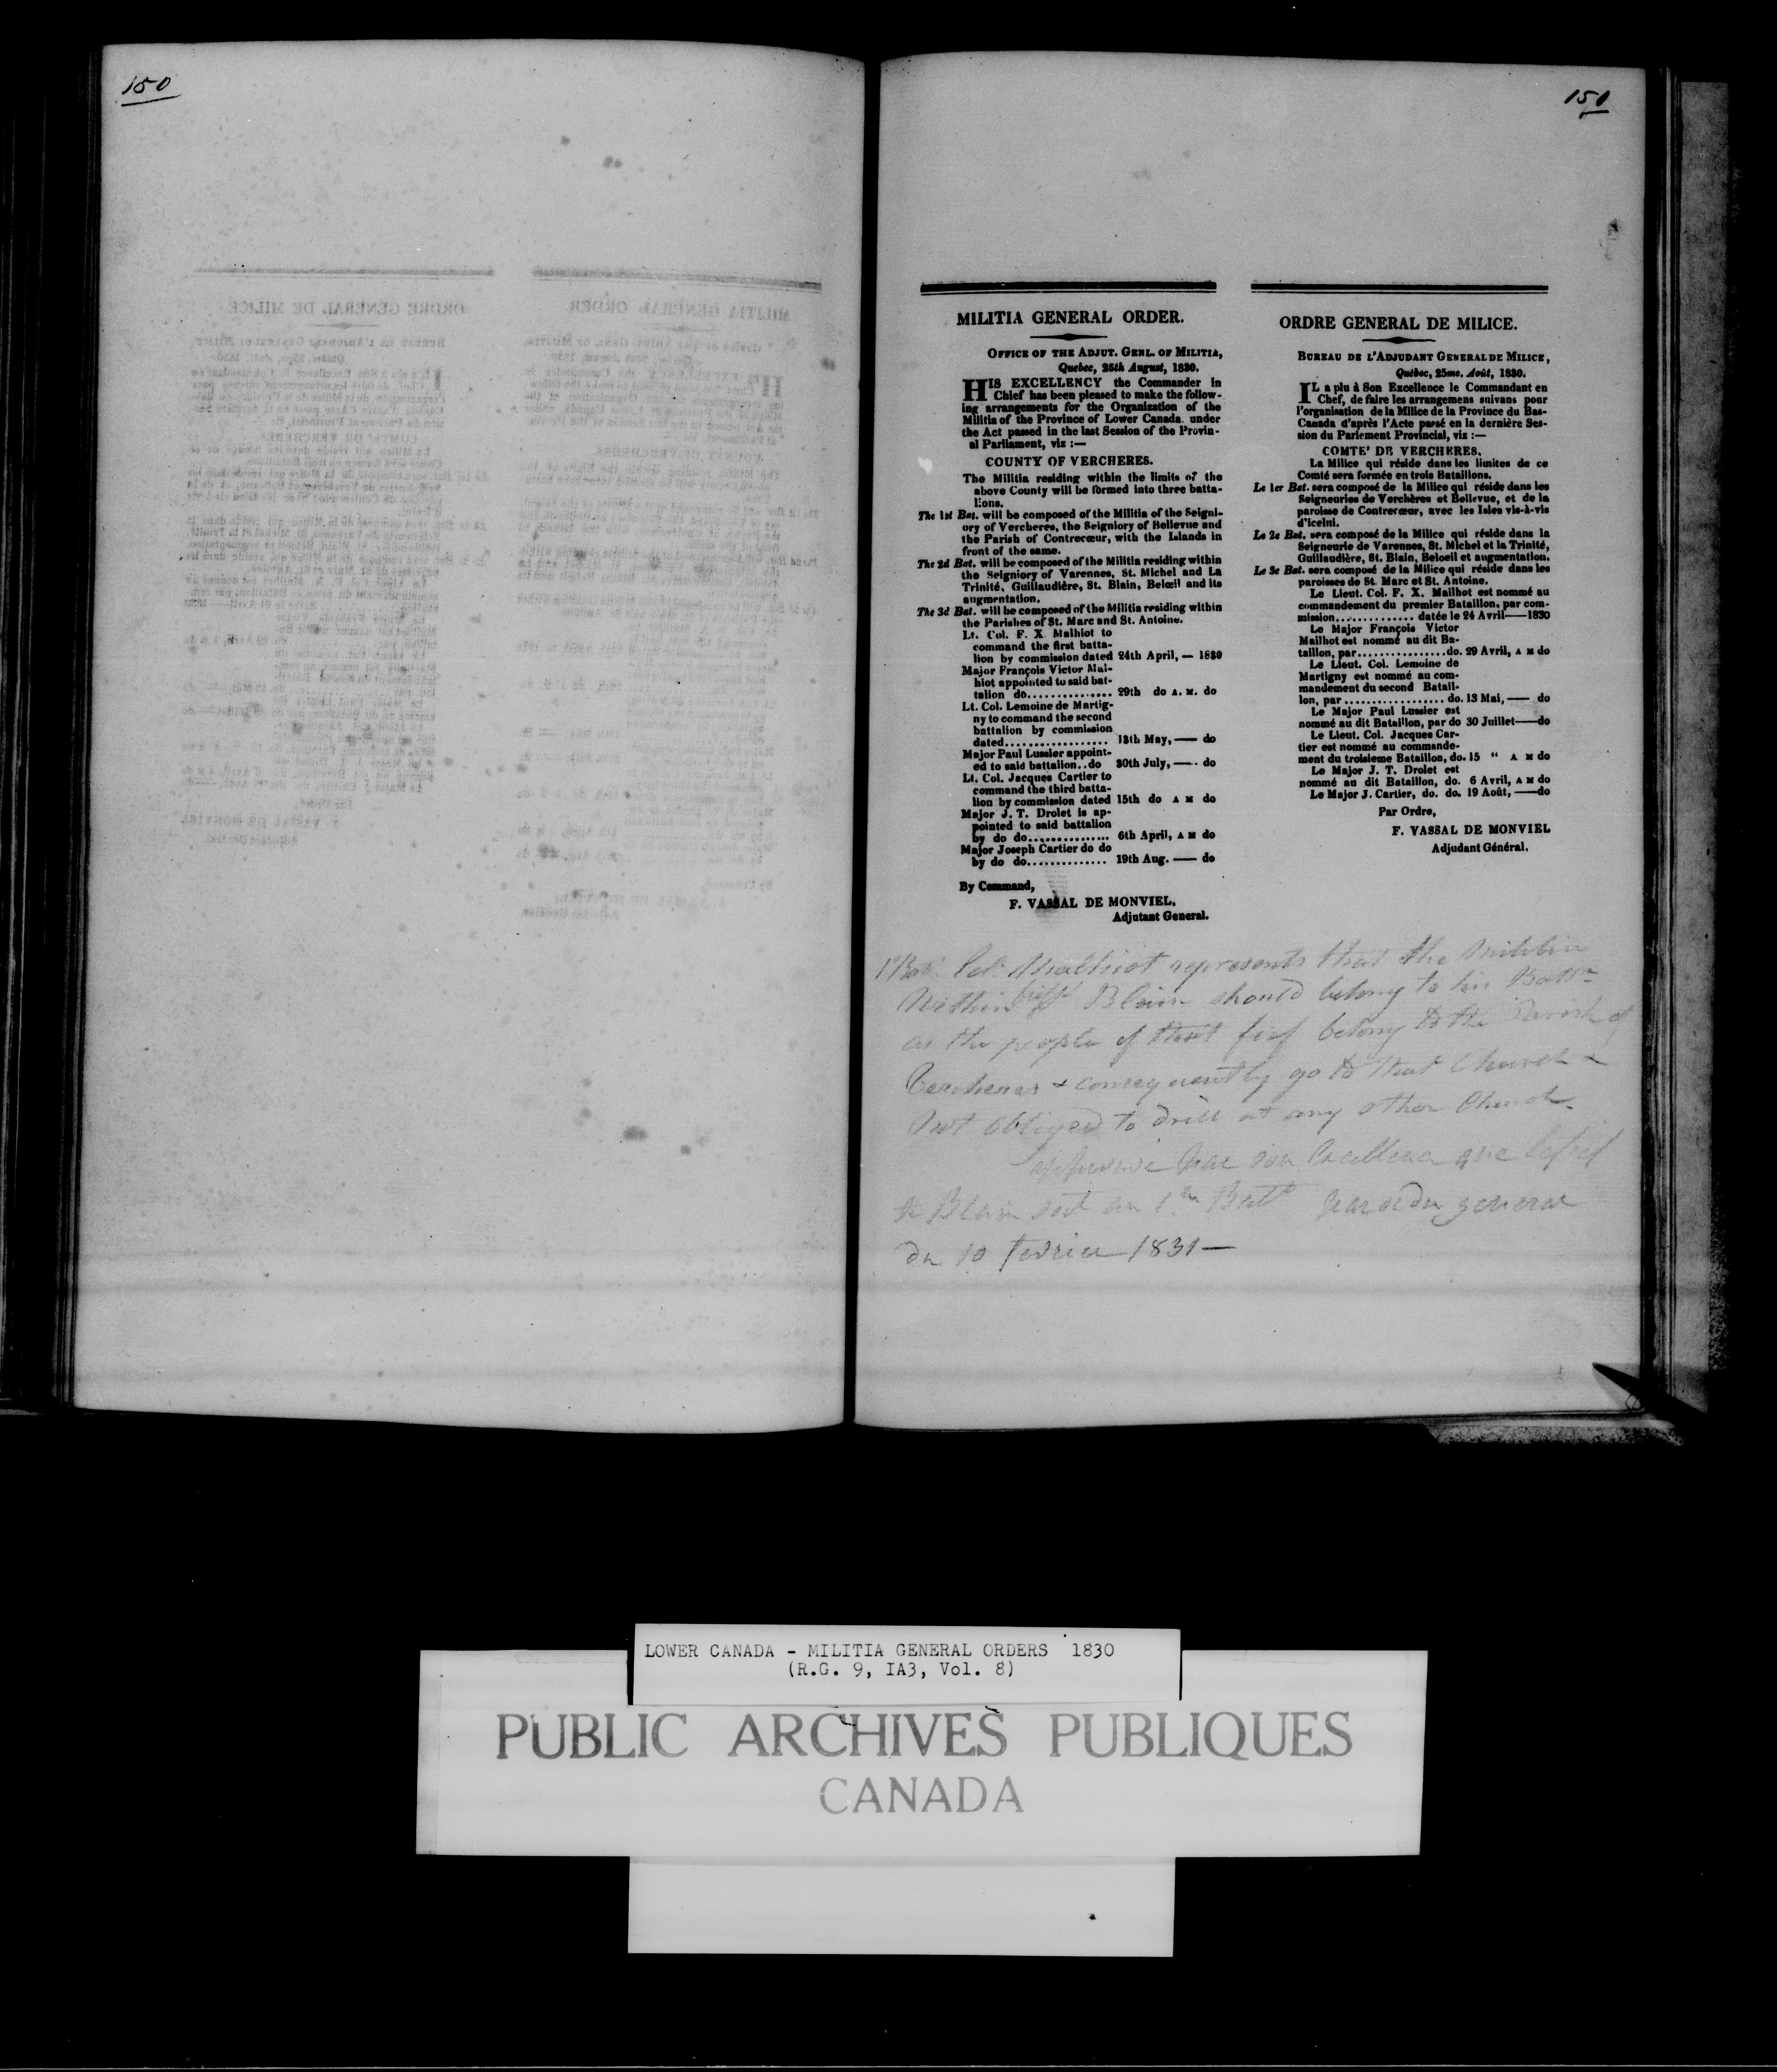 150
150
MILITIA GENERAL ORDER.
OFFICE OF THE ADJUT. GENL. OF MILITIA,
Quebec, 25th August, 1830.
HIS EXCELLENCY the Commander in
Chief has been pleased to make the follow-
ing arrangements for the Organization of the
Militia of the Province of Lower Canada under
the Act passed in the last Session of the Provin-
al Parliament, viz :—
COUNTY OF VERCHERES.
The Militia residing within the limits of the
above County will be formed into three batta-
lions.
The 1st Bat. will be composed of the Militia of the Seigni-
ory of Vercheres, the Seigniory of Bellevue and
the Parish of Contrecœur, with the Islands in
front of the same.
The 2d Bat. will be composed of the Militia residing within
the Seigniory of Varennes, St. Michel and La
Trinité, Guillaudière, St. Blain, Belœil and its
augmentation.
The 3d Bat. will be composed of the Militia residing within
the Parishes of St. Marc and St. Antoine.
Lt. Col. F. X. Malhiot to
command the first batta-
lion by commission dated 24th April, — 1830
Major François Victor Mal-
hiot appointed to said bat-
talion do............... 29th do A. M. do
Lt. Col. Lemoine de Martig-
ny to command the second
battalion by commission
dated.................. 13th May, —— do
Major Paul Lussier appoint-
ed to said battalion..do 30th July, —— do
Lt. Col. Jacques Cartier to
command the third batta-
lion by commission dated 15th do A M do
Major J. T. Drolet is ap-
pointed to said battalion
by do do............... 6th April, A M do
Major Joseph Cartier do do
by do do.............. 19th Aug. —— do
By Command,
F. VASSAL DE MONVIEL,
Adjutant General.
ORDRE GENERAL DE MILICE.
BUREAU DE L'ADJUDANT GENERAL DE MILICE,
Québec, 25me. Août, 1830.
IL a plu à Son Excellence le Commandant en
Chef, de faire les arrangemens suivans pour
l'organisation de la Milice de la Province du Bas-
Canada d'après l'Acte passé en la dernière Ses-
sion du Parlement Provincial, viz :—
COMTE' DE VERCHERES.
La Milice qui réside dans les limites de ce
Comté sera formée en trois Bataillons.
Le 1er Bat. sera composé de la Milice qui réside dans les
Seigneuries de Verchères et Bellevue, et de la
paroisse de Contrecœur, avec les Isles vis-à-vis
d'icelni.
Le 2e Bat. sera composé de la Milice qui réside dans la
Seigneurie de Varennes, St. Michel et la Trinité,
Guillaudière, St. Blain, Beloeil et augmentation.
Le 3e Bat. sera composé de la Milice qui réside dans les
paroisses de St. Marc et St. Antoine.
Le Lieut. Col. F. X. Mailhot est nommé au
commandement du premier Bataillon, par com-
mission.............. datée le 24 Avril——1830
Le Major François Victor
Mailhot est nommé au dit Ba-
taillon, par................do. 29 Avril, A M do
Le Lieut. Col. Lemoine de
Martigny est nommé au com-
mandement du second Batail-
lon, par.................. do. 13 Mai, —— do
Le Major Paul Lussier est
nommé au dit Bataillon, par do 30 Juillet——do
Le Lieut. Col. Jacques Car-
tier est nommé au commande-
ment du troisieme Bataillon, do. 15 “ A M do
Le Major J. T. Drolet est
nommé au dit Bataillon, do. 6 Avril, A M do
Le Major J. Cartier, do. do. 19 Août, ——do
Par Ordre,
F. VASSAL DE MONVIEL
Adjudant Général.
Col: Malhiot represents that the Militia
Within Blain should belong to his Battn
as the people of that fief belong to the Parish of
Vercheres & consequently go to that Church &
Not obliged to drill at any other Church.
son Excellence que le fief
de Blain soit au 1er Batt par ordre general
du 10 fevrier 1831—
LOWER CANADA - MILITIA GENERAL ORDERS 1830
(R.G. 9, IA3, Vol. 8)
PUBLIC ARCHIVES PUBLIQUES
CANADA